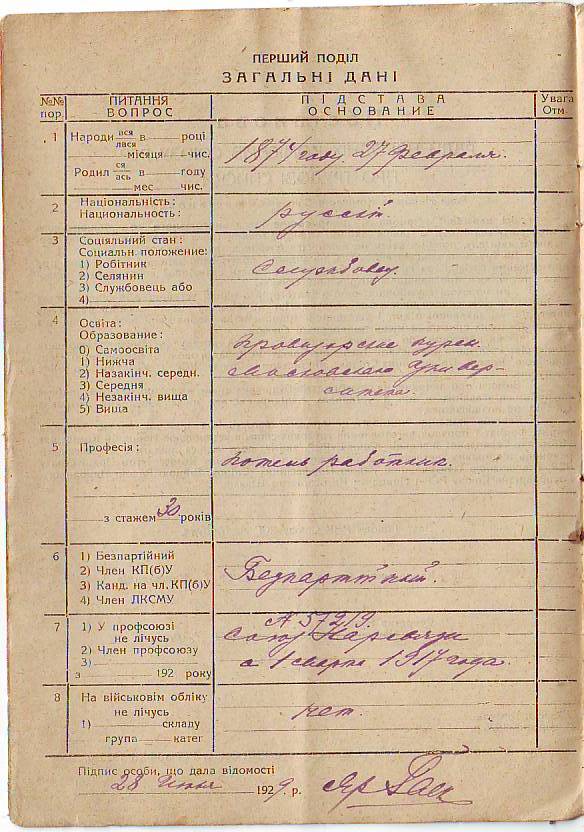 ПЕРШИЙ ПОДІЛ
ЗАГАЛЬНІ ДАНІ
№№ пор.
ПИТАННЯ
ВОПРОС
ПІДСТАВА
ОСНОВАНИЕ
Увага
Отм.
1
Народи вся/лася в році
місяця чис.
Родил ся/ась в году
мес чис.
1874 году, 27 Февраля.
2
Національність:
Национальность:
русский
3
Соціяльний стан:
Социальн. положение:
1) Робітник
2) Селянин
3) Службовець або
4)
4
Освіта:
Образование:
0) Самоосвіта
1) Нижча
2) Назакінч. середн.
3) Середня
4) Незакінч. вища
5) Вища
Московского Универ-
ситета.
5
Професія:
работник.
з стажем 30 років
6
1) Безпартійний
2) Член КП(б)У
3) Канд. на чл. КП(б)У
4) Член ЛКСМУ
Безпартійний.
7
1) У профсоюзі
не лічусь
2) Член профсоюзу
3)
з 192 року
Союз
с 1 марта 1917 года.
8
На військовім обліку
не лічусь
1) складу
група катег
нет.
Підпис особи, що дала відомості
28 1929 р.